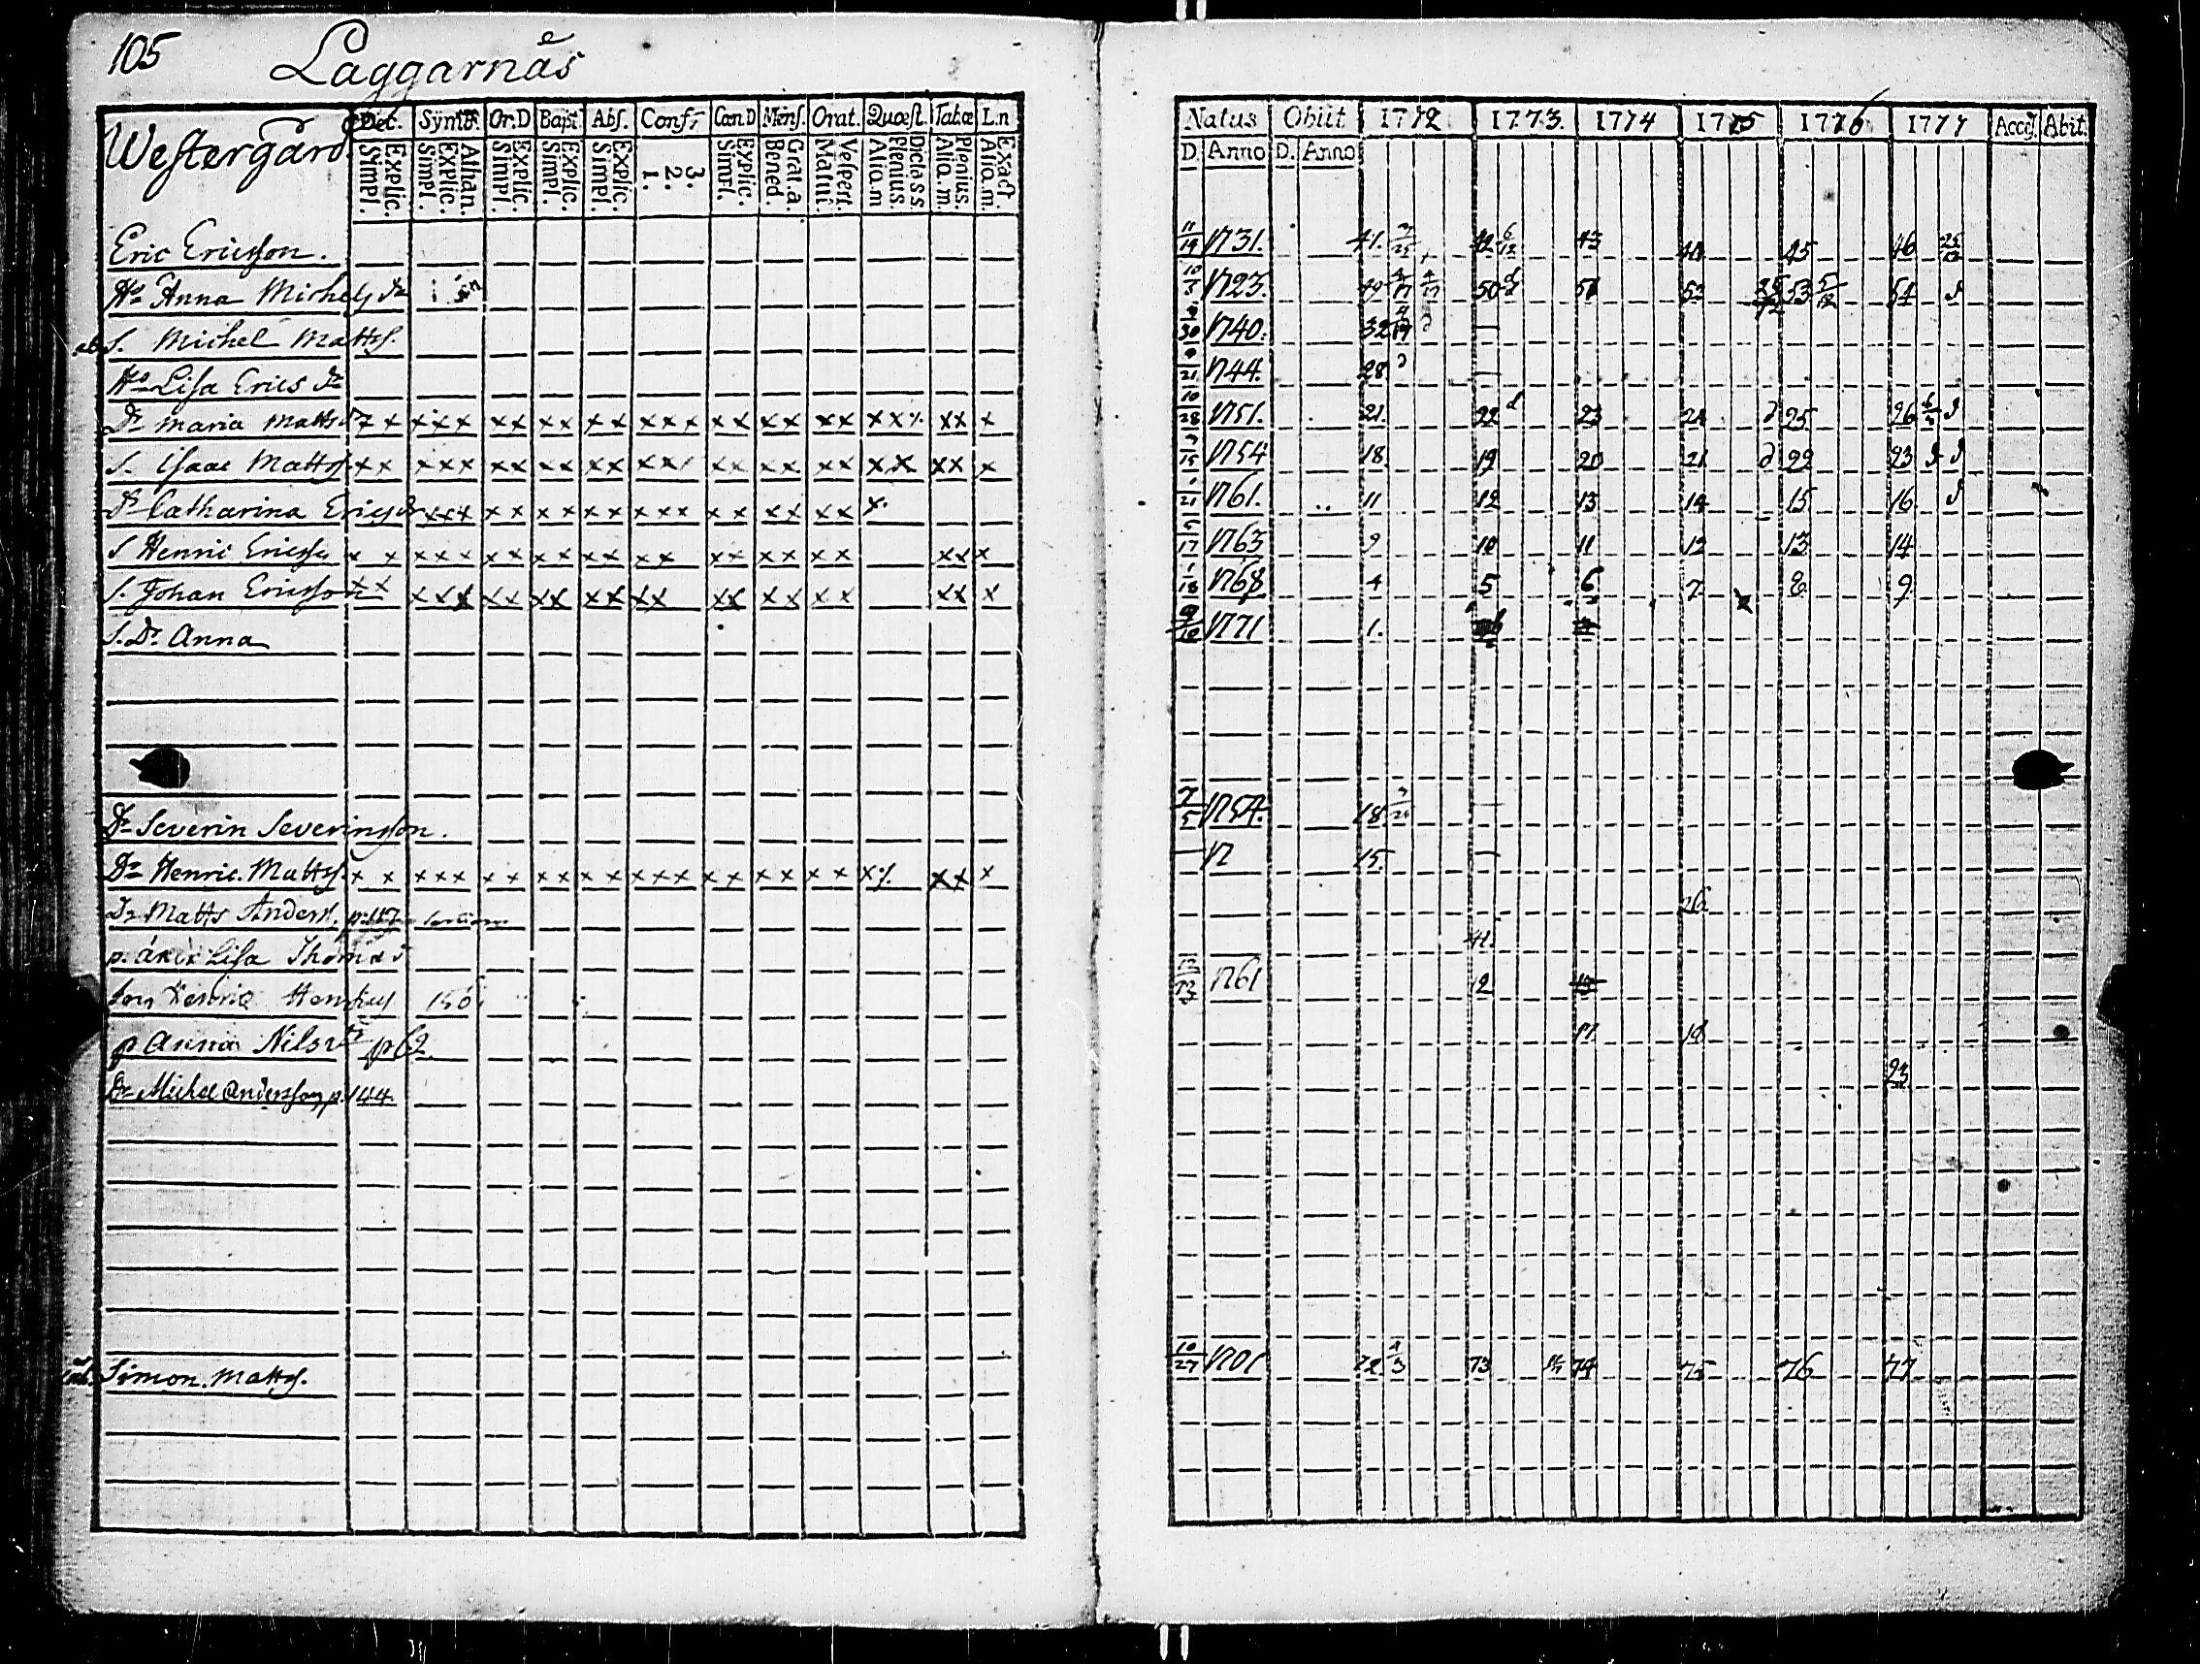 105 Laggarnäs
Westergård.
Dec. Symb. Or.D Bapt. Abs. Conf. Cœn D Mens. Orat. Quæst. Tabæ L.n
Simpl. Explic. Simpl. Explic. Athan. Simpl. Explic. Simpl. Explic. Simpl. Explic. 1. 2. 3. Simpl. Explic. Bened. Grat. a. Matut. Vespert. Aliq. m Plenius. Dicta s s. Aliq. m. Plenius. Aliq. m. Exact.
Natus Obiit 1772 1773. 1774 1775 1776 1777 Acceſ. Abit.
D. Anno D. Anno
Eric Ericsson. 11/19 1731. 41. 42 6/12 43 44 45 46 25/12
Hu Anna Michels dr 10/5 1723. 49 50 d 51 52 53 5/12 54 d
S. Michel Matts. 9/30 1740. 32 d —
Hu Lisa Erics dr 9/21 1744. 28 d —
Dr Maria Matts dr x x x x x x x x x x x x x x x x x x x x x x x x x x x 10/28 1751. 21. 22 d 23 24 d 25 26 d
S. Isaac Matts x x x x x x x x x x x x x x x x x x x x x x x x x 1754 18. 19 20 21 d 22 23 d d
Dr Catharina Erics dr x x x x x x x x x x x x x x x x x x x 1/21 1761. 11 12 13 14 15 16 d
S Henric Ericss x x x x x x x x x x x x x x x x x x x x x x 1763 9 10 11 12 13 14
S. Johan Ericsson x x x x x x x x x x x x x x x x x x x x x x 1/18 1768 4 5 6 7 8 9
S. Dr. Anna 1771 1.
Dr Severin Severinsson. 7/5 1754. 18. —
Dr Henric. Matts. x x x x x x x x x x x x x x x x x x x x x x x x — 17 15. —
Dr Matts Anders. p. 117 26
p. Lisa Thomæ d 41.
Son Henric 150 1761 12 13
p Anna Nils dr p 62 17 18
Dr Michel Andersson, p. 144. 23
Simon. Matts. 10/27 1701 72 4/3 73 74 75 76 77